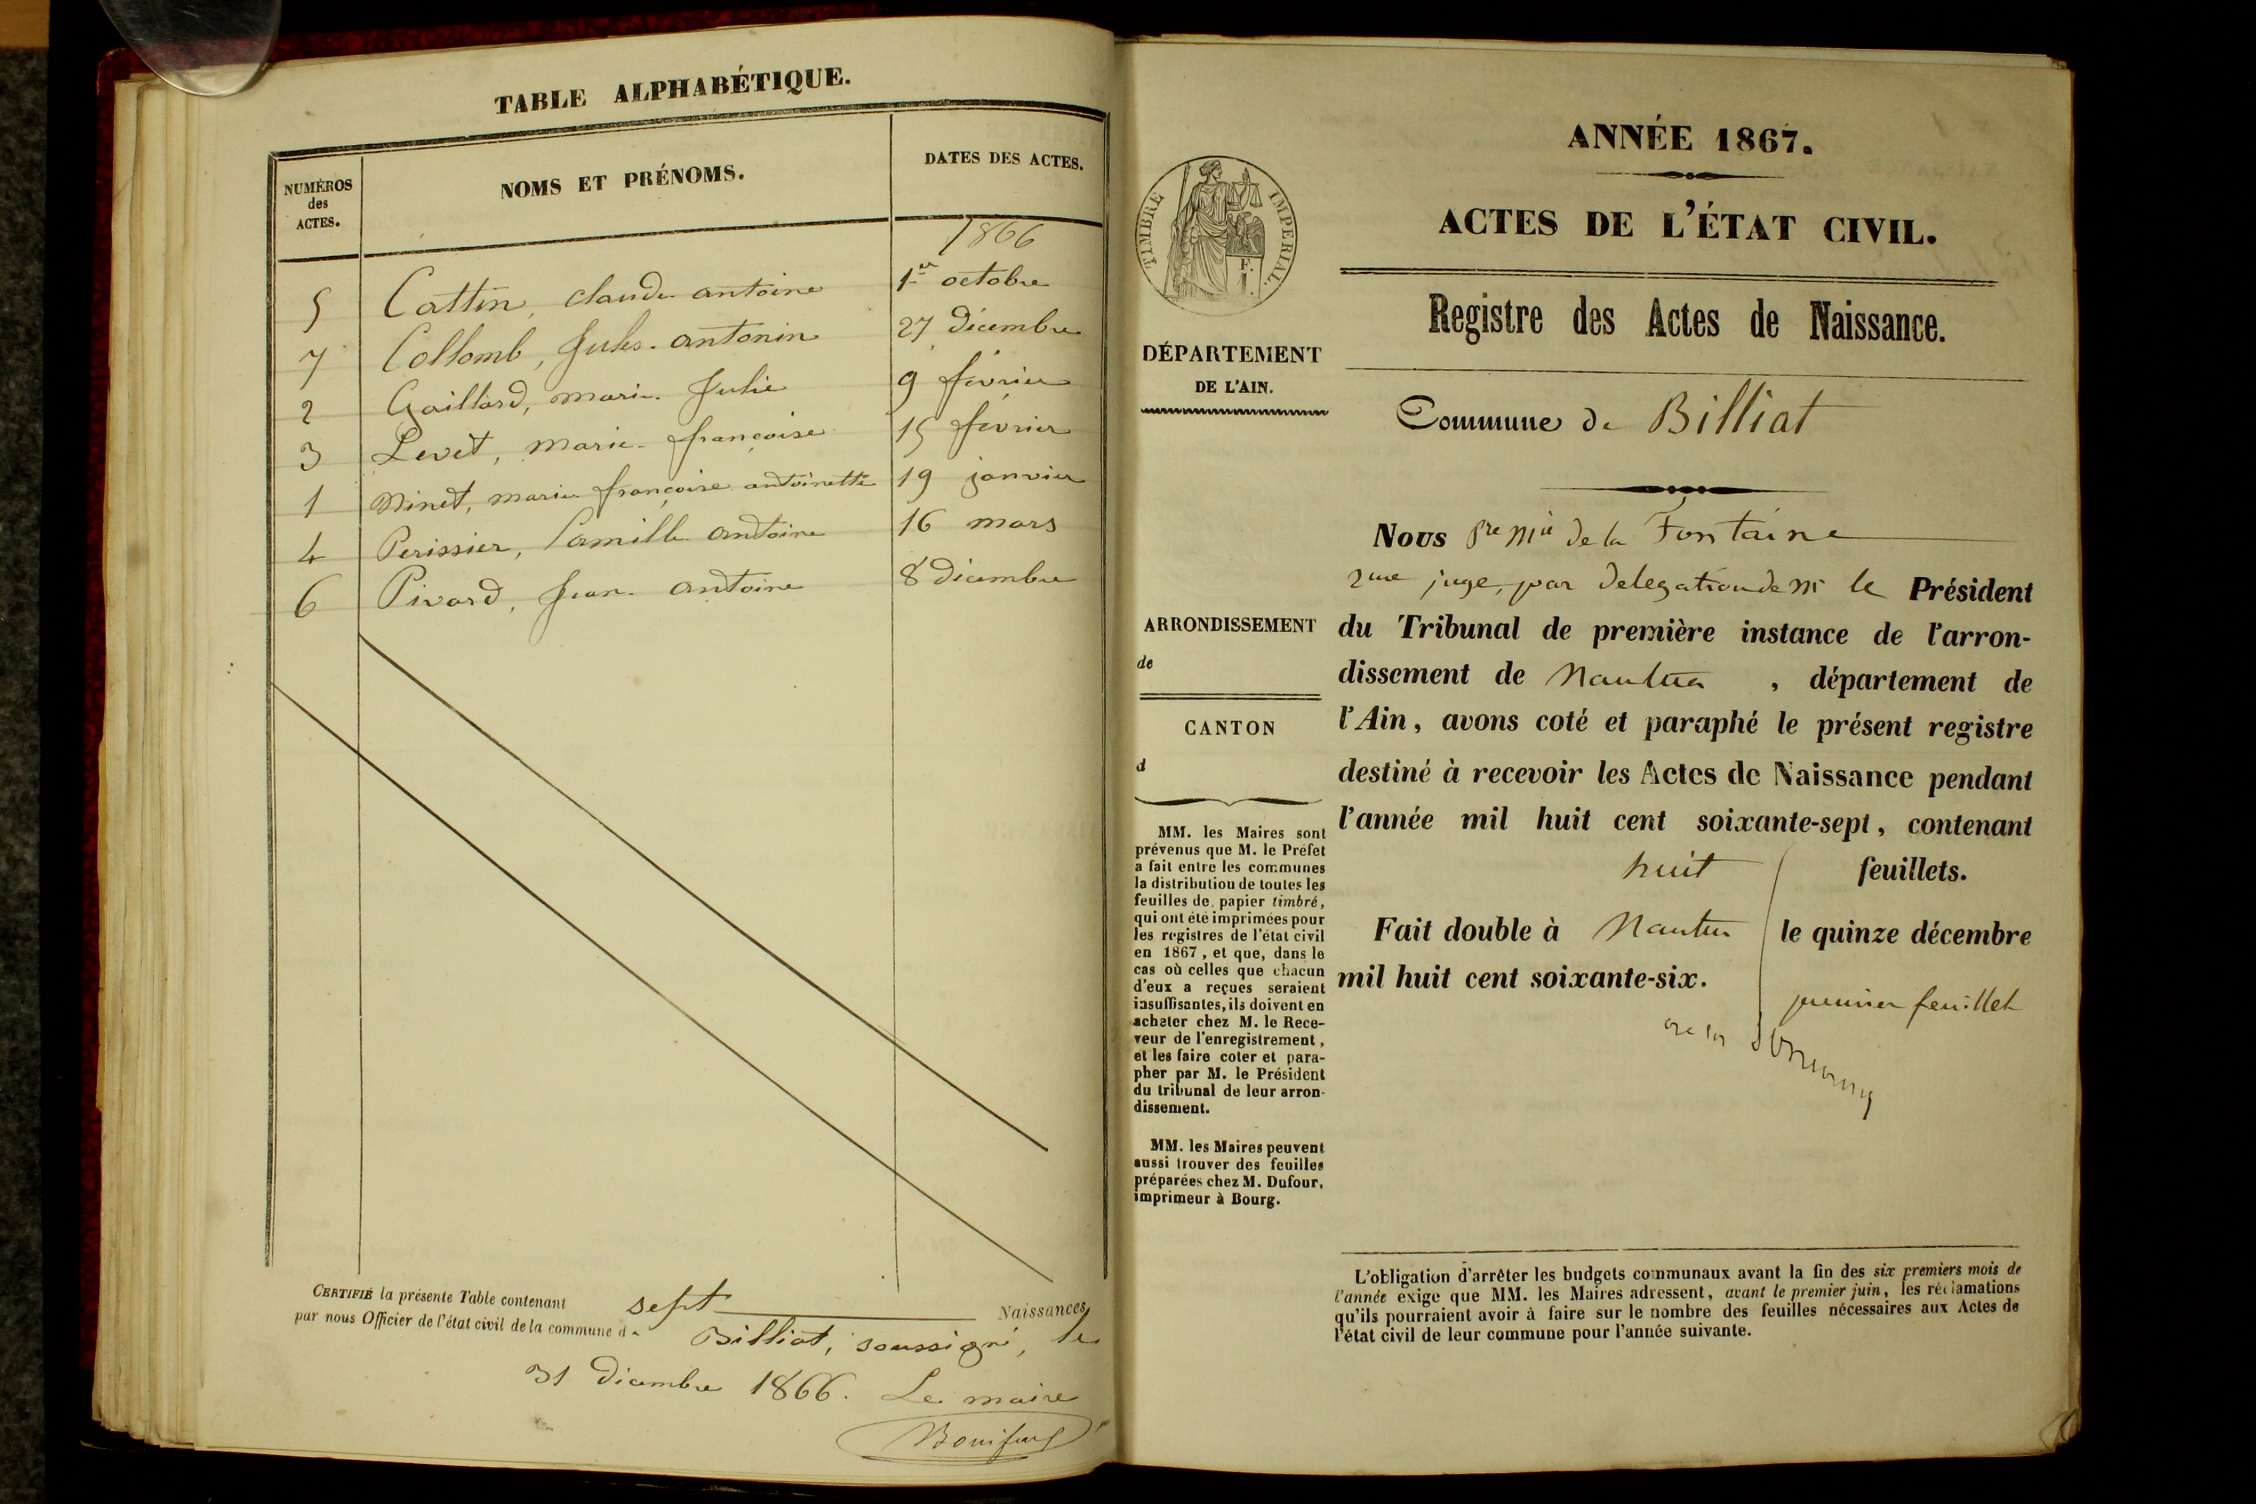 TABLE ALPHABÉTIQUE.
NUMÉROS
des
ACTES.
NOMS ET PRÉNOMS.
DATES DES ACTES.
1866
5 Cattin, claude antoine 1er octobre
7 Collomb, Jules antonin 27 décembre
2 Gaillard, marie Julie 9 février
3 Levet, marie françoise 15 février
1 Ninet, marie françoise antoinette 19 janvier
4 Perissier, Camille antoine 16 mars
6 Pivard, Jean antoine 8 décembre
CERTIFIÉ la présente Table contenant sept Naissances,
par nous Officier de l'état civil de la commune de Billiat, soussigné, le
31 décembre 1866. Le maire
TIMBRE IMPERIAL.
F.
1.
DÉPARTEMENT
DE L'AIN.
ARRONDISSEMENT
de
CANTON
d
MM. les Maires sont
prévenus que M. le Préfet
a fait entre les communes
la distribution de toutes les
feuilles de papier timbré,
qui ont été imprimées pour
les registres de l'état civil
en 1867, et que, dans le
cas où celles que chacun
d'eux a reçues seraient
insuffisantes, ils doivent en
acheter chez M. le Rece-
veur de l'enregistrement,
et les faire coter et para-
pher par M. le Président
du tribunal de leur arron-
dissement.
MM. les Maires peuvent
aussi trouver des feuilles
préparées chez M. Dufour,
imprimeur à Bourg.
ANNÉE 1867.
ACTES DE L'ÉTAT CIVIL.
Registre des Actes de Naissance.
Commune de Billiat
Nous Pre Mie de la Fontaine
juge, par delegation de Mr le Président
du Tribunal de première instance de l'arron-
dissement de Nantua, département de
l'Ain, avons coté et paraphé le présent registre
destiné à recevoir les Actes de Naissance pendant
l'année mil huit cent soixante-sept, contenant
huit feuillets.
Fait double à Nantua le quinze décembre
mil huit cent soixante-six.
premier feuillet
L'obligation d'arrêter les budgets communaux avant la fin des six premiers mois de
l'année exige que MM. les Maires adressent, avant le premier juin, les réclamations
qu'ils pourraient avoir à faire sur le nombre des feuilles nécessaires aux Actes de
l'état civil de leur commune pour l'année suivante.